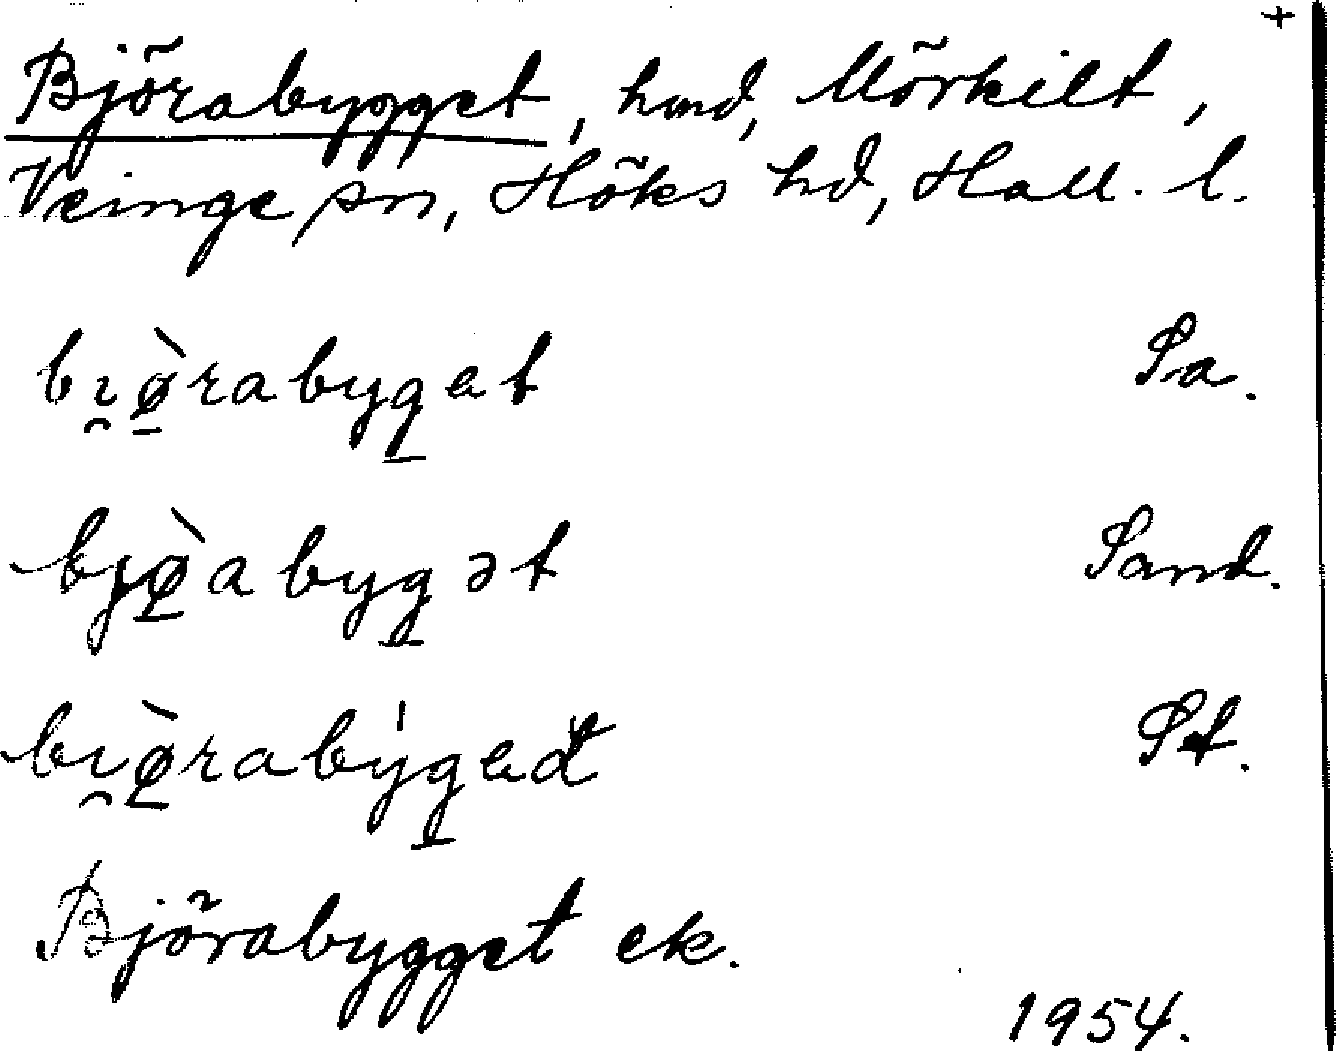 +
Björabygget, hmd, Mörkilt,
Veinge sn, Höks hd, Hall. l.
bi̯ø̠̀rabyg̠et Sa.
bjø̠̀abyg̠ət Sand.
bi̯ø̠̀raby̍g̠ed St.
Björabygget ek.
1954.